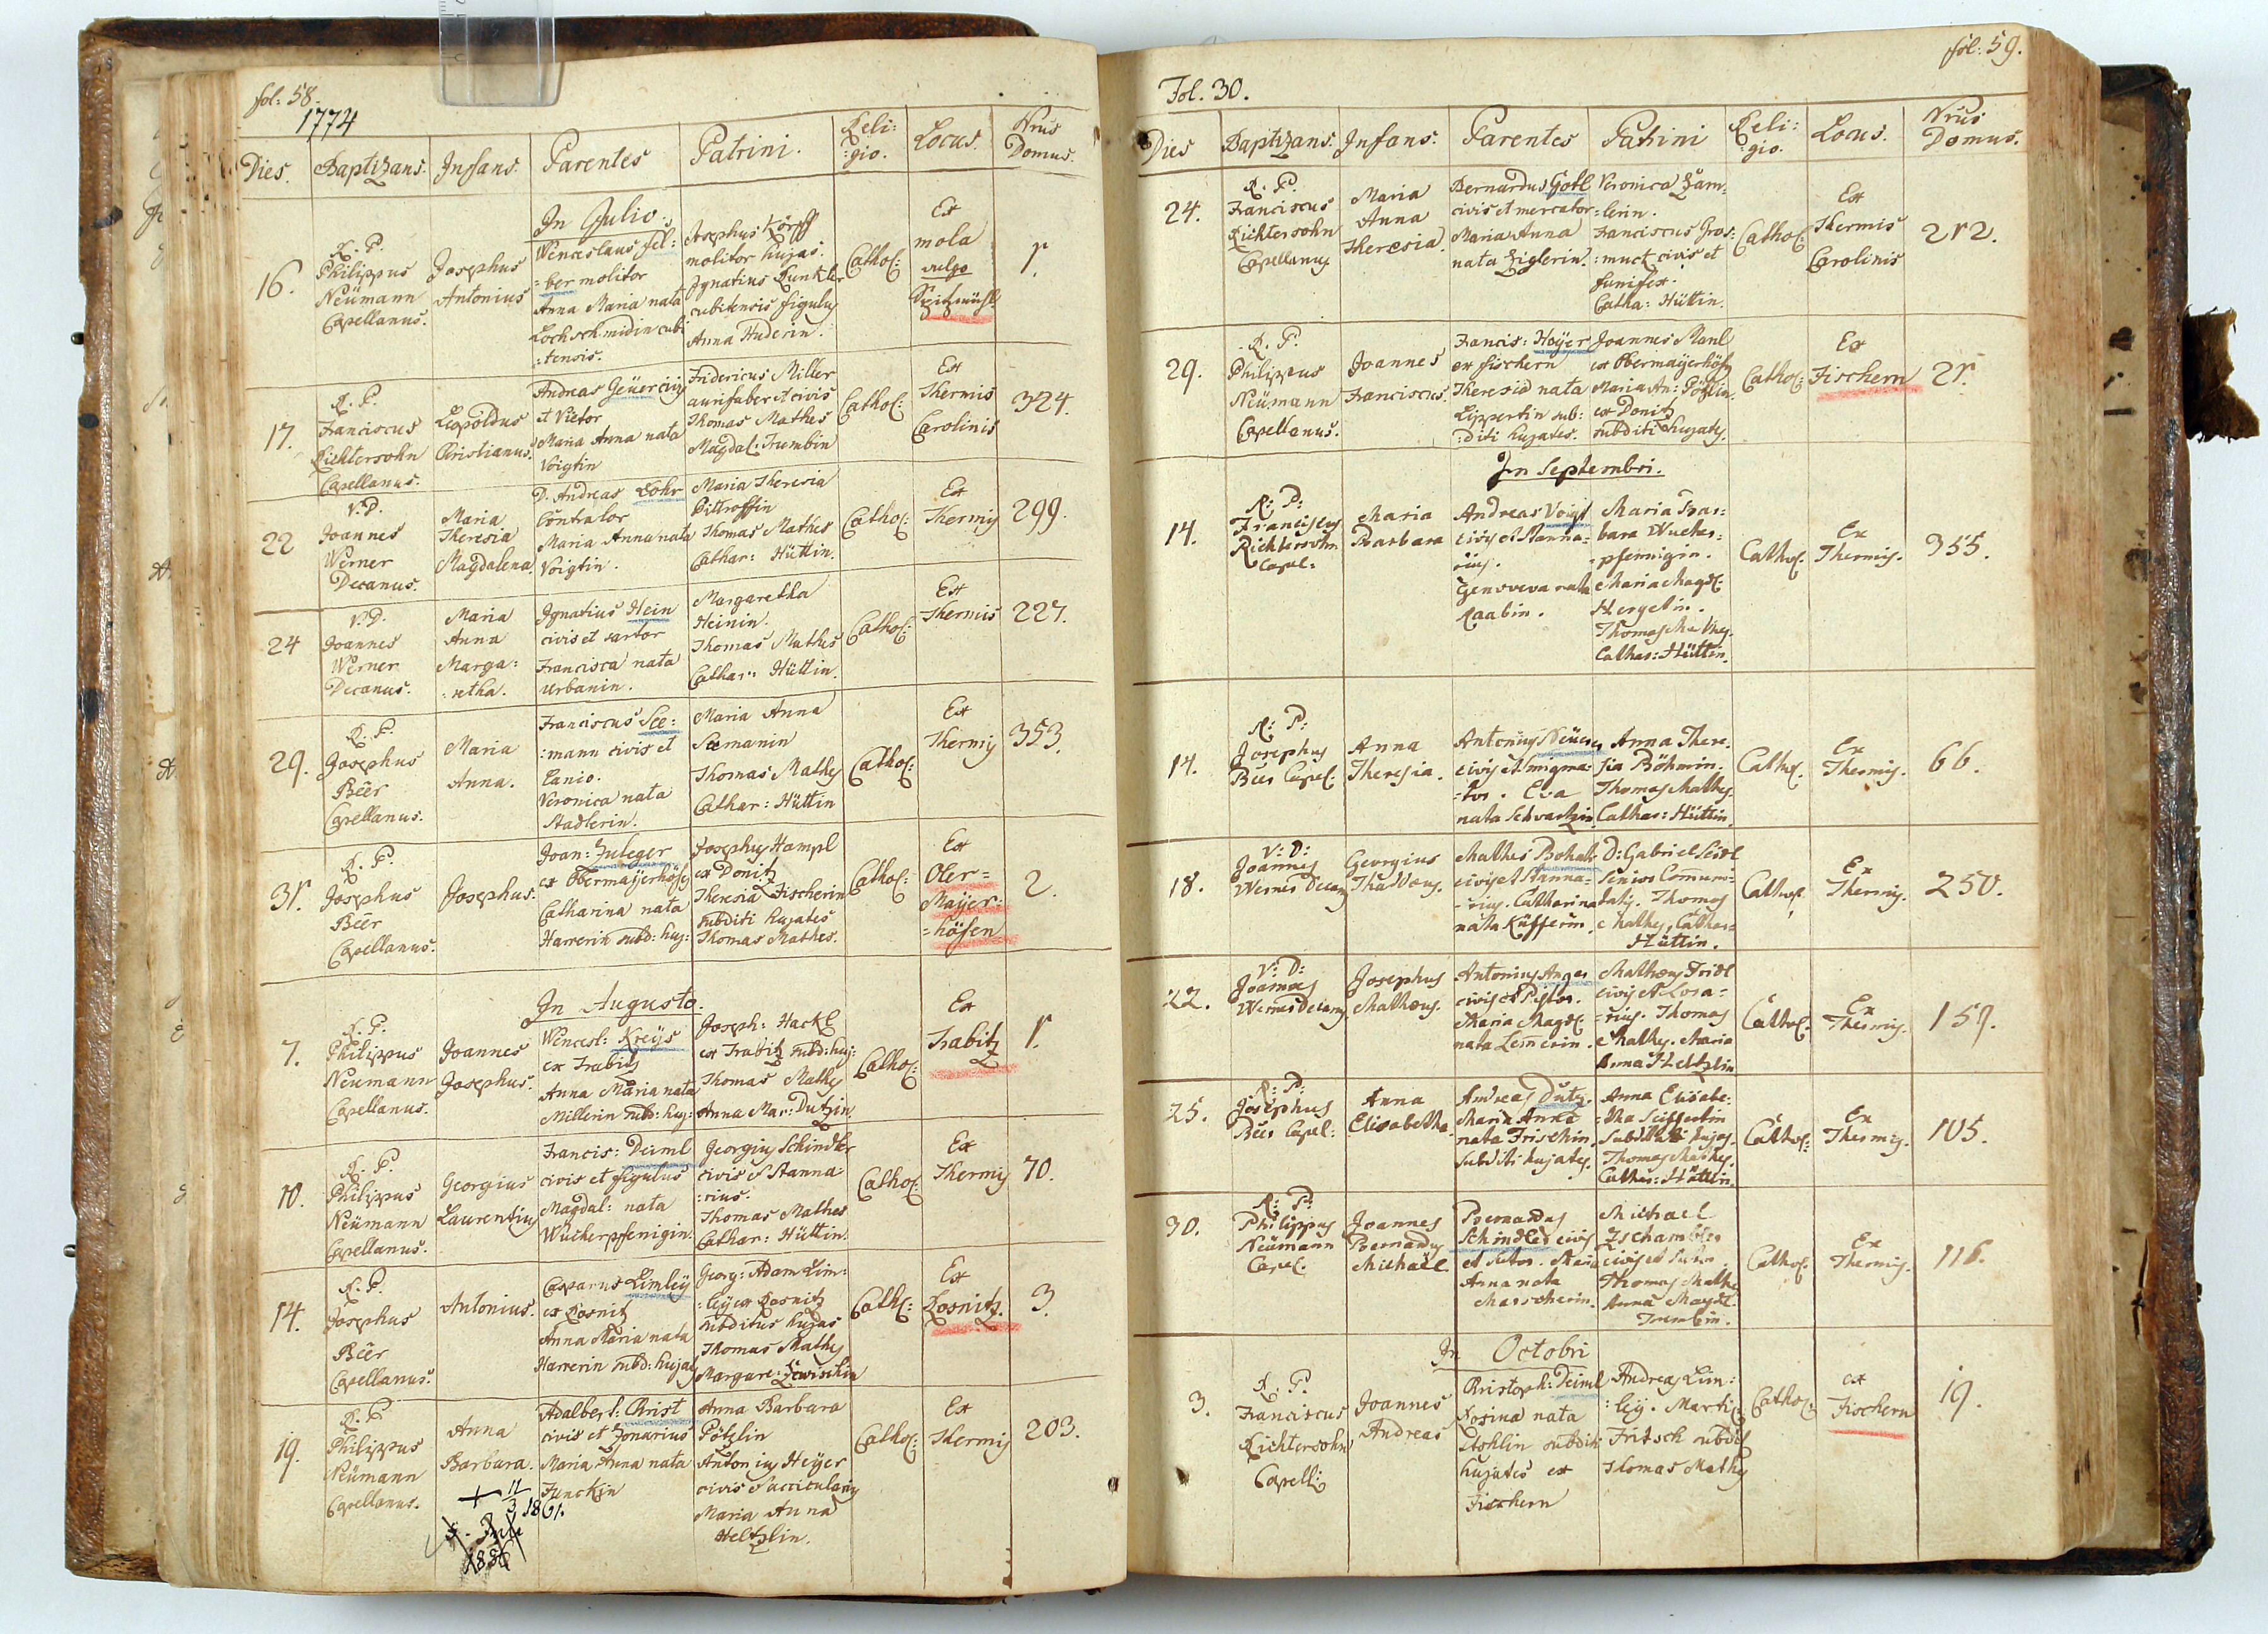 fol: 58.
1774
Dies. Baptizans. Infans. Parentes Patrini. Reli: Locus. Nrus
:gio. Domus.
In Julio.
16.
R. P.
Philippus
Neümann
Capellanus.
Josephus
Antonius
Wenceslaus fel:
=ber molitor
Anna Maria nata
Lochschmidin cubi
:tensis.
Josephus Körff
molitor hujas.
Ignatius Lunkl
cubitensis figulus
Anna Huderin.
Cathol:
Ex
mola
vulgo
Spitzmühl
1.
17.
R. P.
Franciscus
Richtersohn
Capellanus.
Leopoldus
Christianus.
Andreas Geüer civis
et Vietor
Maria Anna nata
Voigtin
Fridericus Miller
aurifaber et civis
Thomas Mathes
Magdal: Trumbin
Cathol:
Ex
Thermis
Carolinis
324.
22
V. D.
Joannes
Werner
Decanus.
Maria
Theresia
Magdalena
D. Andreas Lohr
Contralor
Maria Anna nata
Voigtin.
Maria Theresia
Pittroffin
Thomas Mathes
Cathar: Hüttin.
Cathol:
Ex
Thermis
299.
24
V. D.
Joannes
Werner
Decanus.
Maria
Anna
Marga:
:retha.
Ignatius Hein
civis et sartor
Francisca nata
Urbanin.
Margaretha
Heinin.
Thomas Mathes
Cathar: Hüttin.
Cathol:
Ex
Thermis
227.
29.
R. P.
Josephus
Beër
Capellanus.
Maria
Anna.
Franciscus See:
:mann civis et
Lanio.
Veronica nata
Stadlerin.
Maria Anna
Seemanin
Thomas Mathes
Cathar: Hüttin
Cathol:
Ex
Thermis
353.
31.
R. P.
Josephus
Beër
Capellanus.
Josephus.
Joan: Zuleger
ex Obermaÿerhöfen
Catharina nata
Harrerin subd: huj:
Josephus Hampl
ex Donitz
Theresia Fischerin
subditi hujates
Thomas Mathes.
Cathol:
Ex
Ober=
Maÿer:
=höfen
2.
In Augusto.
7.
R. P.
Philippus
Neumann
Capellanus.
Joannes
Josephus.
Wencesl: Kreÿs
ex Trabitz
Anna Maria nata
Millerin subd: huj:
Joseph: Hackl
ex Trabitz subd: huj:
Thomas Mathes
Anna Mar: Dutzin.
Cathol:
Ex
Trabitz
1.
10.
R. P.
Philippus
Neümann
Capellanus.
Georgius
Laurentius
Francis: Deiml
civis et figulus
Magdal: nata
Wucherpfenigin.
Georgius Schindler
civis & Stanna:
:rius.
Thomas Mathes
Cathar: Hüttin.
Cathol:
Ex
Thermis
70.
14.
R. P.
Josephus
Beër
Capellanus.
Antonius.
Casparus Limleÿ
ex Rosnitz
Anna Maria nata
Harrerin subd: hujas
Georg: Adam Lim:
:leÿ ex Rosnitz
subditus hujas
Thomas Mathes
Margare: Lewischin
Cathl:
Ex
Rosnitz.
3.
19.
R. P.
Philippus
Neümann
Capellanus.
Anna
Barbara.
11
3 1861.
Adalbert: Christ
civis et Zonarius
Maria Anna nata
Junckin
Anna Barbara
Pötzlin
Antonius Heÿer
civis Saccicularius
Maria Anna
Heltzlin.
Cathol:
Ex
Thermis
203.
Fol. 30.
fol: 59.
Dies Baptizans. Infans: Parentes Patrini Reli: Locus. Nrus
gio. Domus.
24.
R. P.
Franciscus
Richtersohn
Capellanus
Maria
Anna
Theresia
Bernardus Gotl
civis et mercator
Maria Anna
nata Ziglerin.
Veronica Zam:
:lerin.
Franciscus Gros:
:muck civis et
funifex.
Catha: Hüttin.
Cathol:
Ex
Thermis
Carolinis
212.
29.
R. P.
Philippus
Neümann
Capellanus.
Joannes
Franciscus.
Francis: Hoÿer
ex fischern
Theresia nata
Lippertin sub:
:diti hujates.
Joannes Manl
ex Obermaÿerhöfn
Maria An: Pötzlin
ex Donitz
subditi hujates.
Cathol:
Ex
Fischern
21.
In Septembri.
14.
R: P:
Franciscus
Richtersohn
Capel:
Maria
Barbara
Andreas Voigt
civis et Stanna=
rius.
Genoveva nata
Raabin.
Maria Bar:
bara Wucher:
pfennigin.
Maria Magdl.
Hergetin.
Thomas Mathes.
Cathar: Hüttin.
Cathol.
Ex
Thermis.
355.
14.
R: P:
Josephus
Beer Capel.
Anna
Theresia.
Antonius
civis et
=tor. Eva
nata Schwartzin.
Anna There.
sia Böhmin.
Thomas Mathes.
Cathar: Hüttin.
Cathol.
Ex
Thermis.
66.
18.
V: D:
Joannes
Werner Decan
Georgius
Thaddæus.
Mathes
civis et Stanna=
=rius. Catharina
nata Küfferin.
D: Gabriel Seidl
Senior Communi=
tatis. Thomas
Mathes, Cathar=
Hüttin.
Cathol.
Ex
Thermis.
250.
22.
V: D:
Joannes
Werner Decan
Josephus
Mathæus.
Antonius Anger
civis et Pistor.
Maria Magdl.
nata Lemerin.
Mathæus Fridl
civis et Lora=
=rius. Thomas
Mathes. Maria
Anna Heltzlin
Cathol.
Ex
Thermis.
157.
25.
R: P:
Josephus
Beer Capel:
Anna
Elisabetha.
Andreas Dutz.
Maria Anna
nata Frischin.
Subditi hujates.
Anna Elisabe:
tha Seiffertin
Subdita hujas.
Thomas Mathes.
Cathar: Hüttin.
Cathol:
Ex
Thermis.
105.
30.
R: P:
Philippus
Neümann
Capel.
Joannes
Bernardus
Michael
Bernardus
Schindler civis
et Sutor. Maria
Anna nata
Marscherin.
Michael
Zschambler
civis et Sutor.
Thomas Mathes
Anna Magdl.
Trumbin.
Cathol.
Ex
Thermis.
116.
In Octobri
3.
R. P.
Franciscus
Richtersohn
Capell:
Joannes
Andreas
Christoph: Deiml
Rosina nata
Stohlin subditi
hujates ex
Fischern
Andreas Lim:
:leÿ. Martin
Fritsch subdit
Thomas Mathes
Cathol:
ex
Fischern
19.